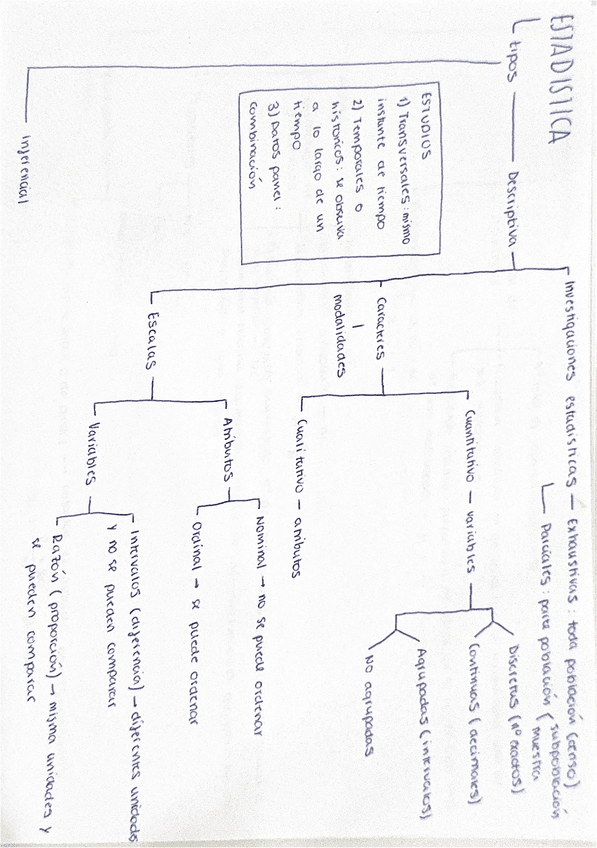 ESTADISTICA
tipos
Descriptiva
Investigaciones estadisticas
Exhaustivas : toda población (censo)
Parciales : parte población ( subpoblación
muestra
Caracteres
modalidades
Cuantitativo - variables
Discretas (nº exactos)
Continuas ( decimales)
Agrupadas ( intervalos)
No agrupadas
Cualitativo - atributos
Escalas
Atributos
Nominal → no se puede ordenar
Ordinal → se puede ordenar
Variables
Intervalos (diferencia) → diferentes unidades
y no se pueden comparar
Razón ( proporción) → misma unidades y
se pueden comparar
ESTUDIOS
1) Transversales : mismo
instante de tiempo
2) Temporales o
historicos : se observa
a lo largo de un
tiempo
3) Datos panel :
combinación
Inferencial